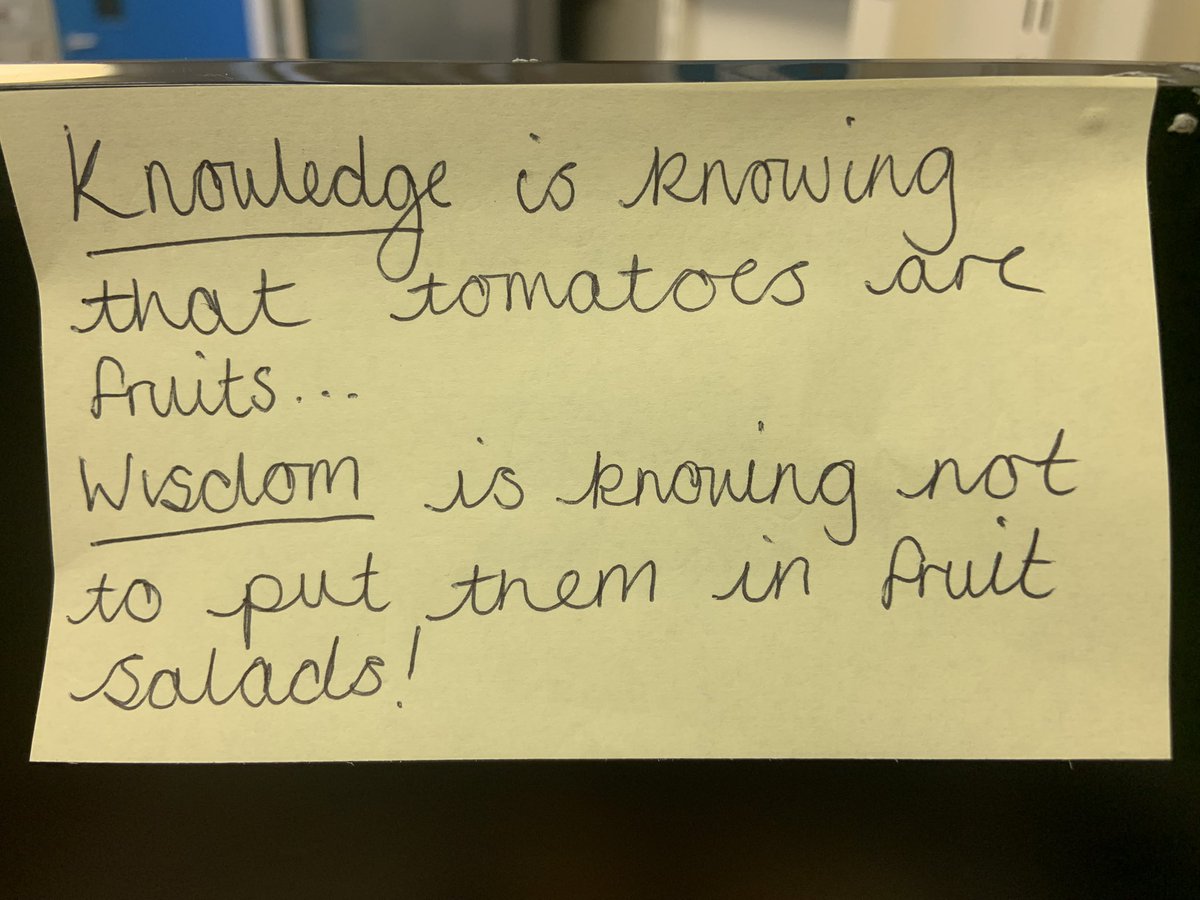 Knowledge is knowing
that tomatoes are
fruits...
Wisdom is knowing not
to put them in fruit
salads!